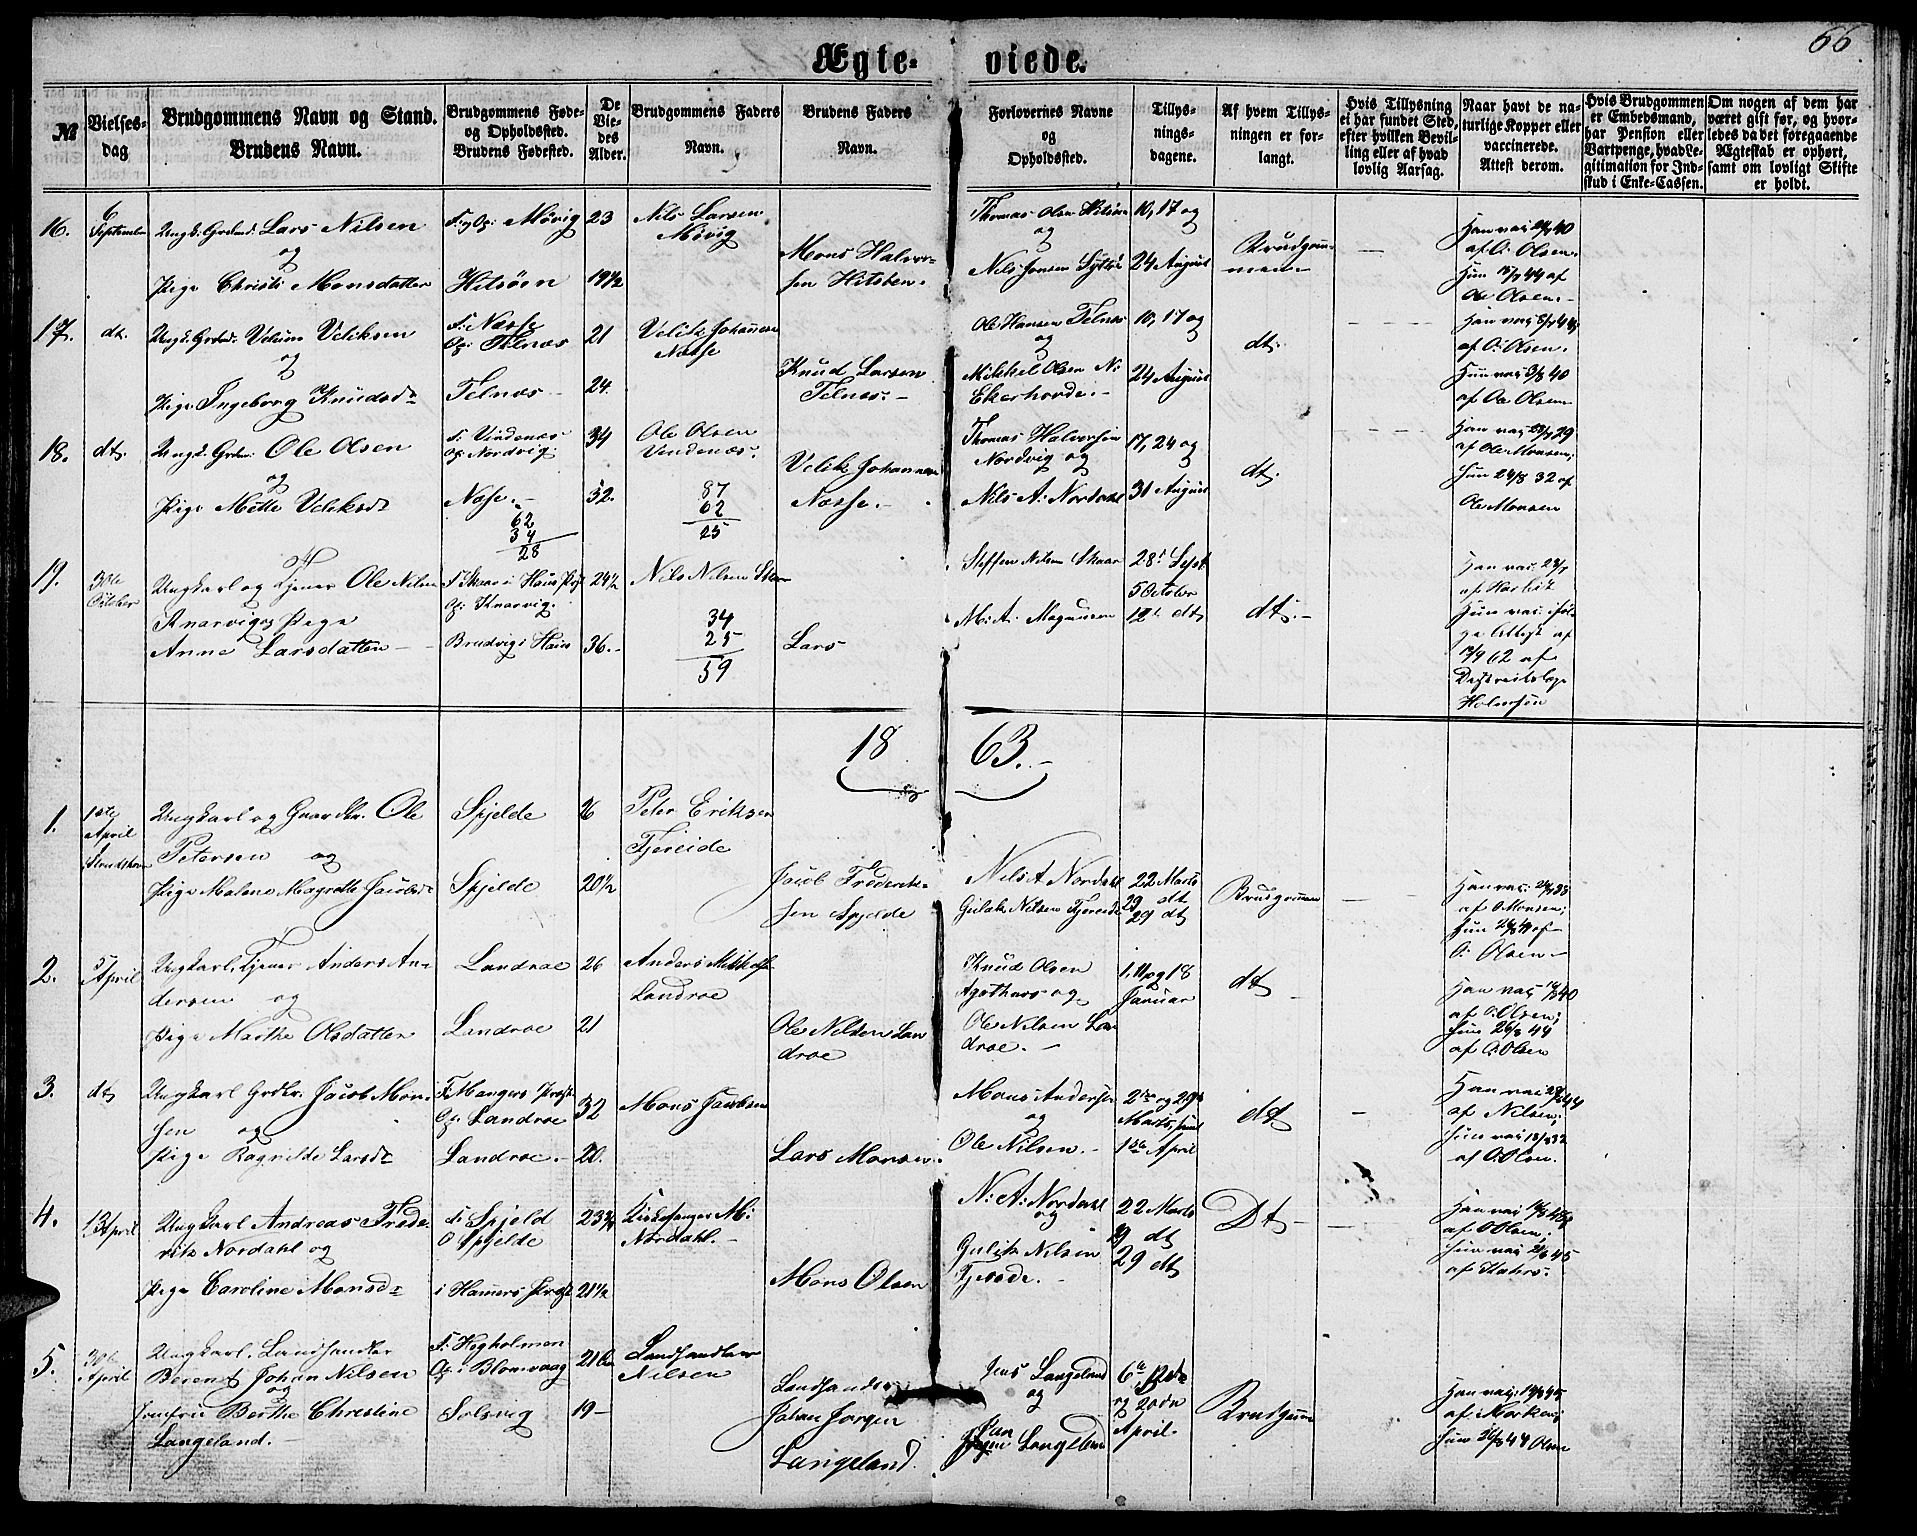 66
Ægte-viede.
№
Vielses-
dag
Brudgommens Navn og Stand.
Brudens Navn.
Brudgommens Føde-
og Opholdssted.
Brudens Fødested.
De
Vie-
des
Alder.
Brudgommens Faders
Navn.
Brudens Faders
Navn.
Forlovernes Navne
og
Opholdssted.
Tillys-
nings-
dagene.
Af hvem Tillys-
ningen er for-
langt.
Hvis Tillysning
ei har fundet Sted,
efter hvilken Bevil-
ling eller af hvad
lovlig Aarsag.
Naar havt de na-
turlige Kopper eller
vaccinerede.
Attest derom.
Hvis Brudgommen
er Embedsmand,
har Pension eller
Vartpenge, hvad Le-
gitimation for Ind-
skud i Enke-Cassen.
Om nogen af dem har
været gift før, og hvor-
ledes da det foregaaende
Ægteskab er ophørt,
samt om lovligt Skifte
er holdt.
16.
6
September
Ungk. Grdmd. Lars Nilsen
og
Pige Christi Monsdatter
F. og Op: Møvig
Hitsøen
23
19½
Nils Larsen
Møvig
Mons Halvor-
sen Hitsøen.
Thomas Olsen Hitsøen
og
Nils Jonsen
10, 17 og
24 August
Brudgom-
men
Han vac. 40
af O: Olsen.
Hun 44 af
Ole Olsen.
17.
dt.
Ungk. Grdmd. Velum Veliksen
og
Pige Ingeborg Knudsdr
F: Næsse
Op: Telnæs
Telnæs
21
24.
Velik Johannesen
Næsse
Knud Larsen
Telnæs.
Ole Hansen Telnæs
og
Mikkel Olsen N:
Ekerhovde.
10, 17 og
24 August
dt.
Han vac. 44
af O: Olsen.
Hun vac. 3/8 40
af Ole Olsen
18.
dt.
Ungk. Grdmd. Ole Olsen
og
Pige Mette Veliksdr
F: Vindenæs
Op: Nordvig
Næse.
62
34
28
34
32.
Ole Olsen
Vindenæs.
87
62
25
Velik Johannesen
Næsse.
Thomas Halvorsen
Nordvig og
Nils A: Nordahl
17, 24 og
31 August
dt.
Han vac. 29
af Ole Monsen;
Hun 24/8 32 af
Ole Monsen
19.
30te
October
Ungkarl og Tjener Ole Nilsen
Knarvig og Pige
Anne Larsdatter
F. Skaar i Haus Prgj
Op: Knarvig.
Brudvig i Haus
24½
36.
Nils Nilsen Skaar
34
25
59
Lars
Steffen Nilsen Skaar
M: A. Magnusen
28' Sept
5 October
12te dt
dt.
Han vac. 23/7
af Harbitz
Hun vac. iføl-
ge Attest af
12/9 62 af
Districtslæge
Holmsen
1863.
1.
1ste
April
Ungkarl og Gaardbr. Ole
Petersen og
Pige Malene Magrethe Jacobsdr
Spjelde
Spjelde
26
20½
Peter Eriksen
Fjereide
Jacob Frederik-
sen Spjelde
Nils A Nordahl
Gulak Nilsen Fjereide
22 Marts
29 dt
29 dt
Brudgommen
Han vac. 38
af O. Monsen;
Hun af
O: Olsen.
2.
5
April
Ungkarl, Tjener Anders An-
dersen og
Pige Marthe Olsdatter
Landroe
Landroe
26
21
Anders Mikkelsen
Landroe
Ole Nilsen Lan
droe
Knud Olsen
Agothnæs og
Ole Nilsen Lan
droe.
1. 11 og 18
Januar
dt
Han vac. 40
af O: Olsen;
Hun 26/8 44
af O. Olsen
3.
dt
Ungkarl Grdbr. Jacob Mon-
sen og
Pige Ragnilde Larsdr
F: Mangers Prgj
Op: Landroe
Landroe.
32
20.
Mons Jacobsen
Lars Monsen.
Mons Andersen
og
Ole Nilsen.
Marts, samt
1ste April
dt
Han vac. 44
af Nilsen;
Hun vac. 32
af O: Olsen.
4.
13 April
Ungkarl Andreas Frede-
rik Nordahl og
Pige Caroline Monsdr
F: Spjeld
O Spjelde
i Hamers Prgj
23¾
21½
Kirkesanger M:
Nordahl.
Mons Olsen
N: A: Nordahl
og
Gulik Nilsen
22 Marts
29 dt
29 dt
Dt
Han vac.
af O: Olsen;
Hun vac. 45
5.
30te
April
Ungkarl. Landhandler
Berent Johan Nilsen
og
Jomfru Berthe Christine
Langeland.
F: Hegholmen
Op: i Blomvaag
Solsvig
21
19
Landhandler
Nilsen
Landhandler
Johan Jørgen
Langeland.
Jens Langeland
og
Langeland
6te
og 20de
April.
Brudgommen
Han vac. 45
af
Hun 26/8 44 Olsen